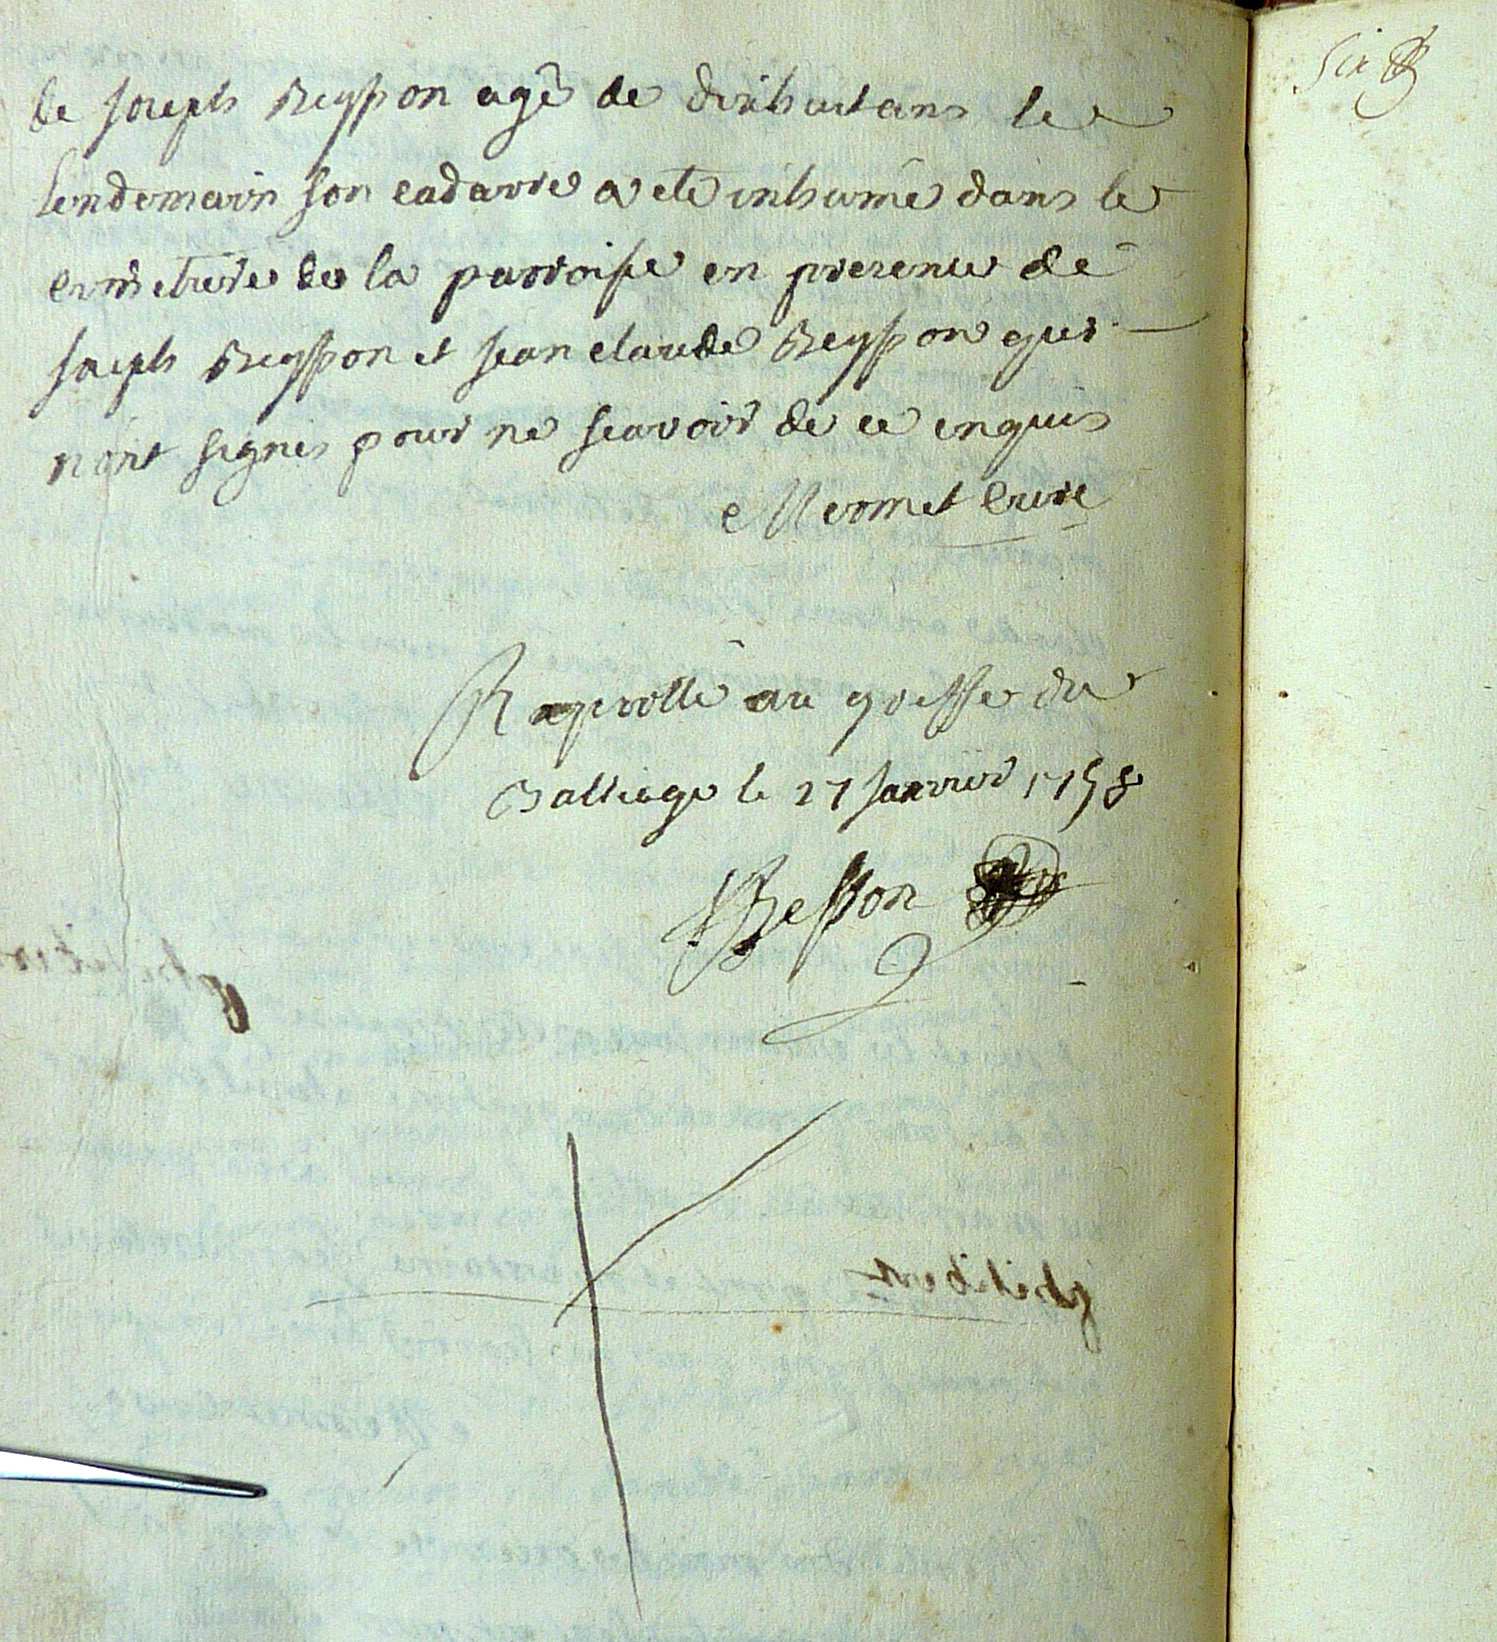 de joseph Reysson agé de dixhuit ans le
lendemain son cadavre a eté inhumé dans le
cimetiere de la parroisse en presence de
joseph Reysson et jean claude Reysson qui
n'ont signés pour ne scavoir de ce enquis
Mermet curé
Raporté au greffe du
Balliage le 27 janvier 1758
Besson
six